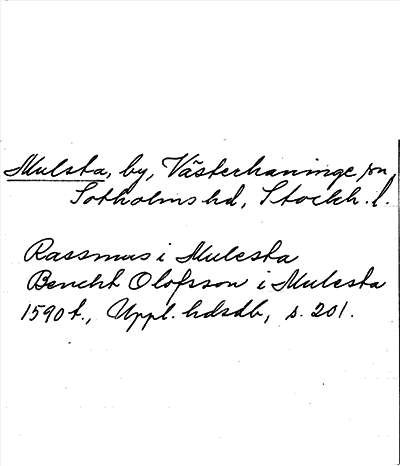 Mulsta, by, Västerhaninge sn,
Sotholms hd, Stockh. l.
Rassmus i Mulesta
Bencht Olofsson i Mulesta
1590 t., Uppl. hdsdb, s. 201.